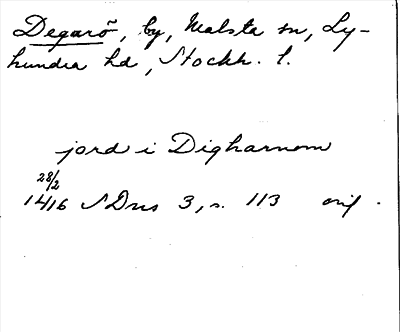 Degarö, by, Malsta sn, Ly-
hundra hd, Stockh. l.
jord i Digharnom
28/2
1416 SDns 3, s. 113 orig.